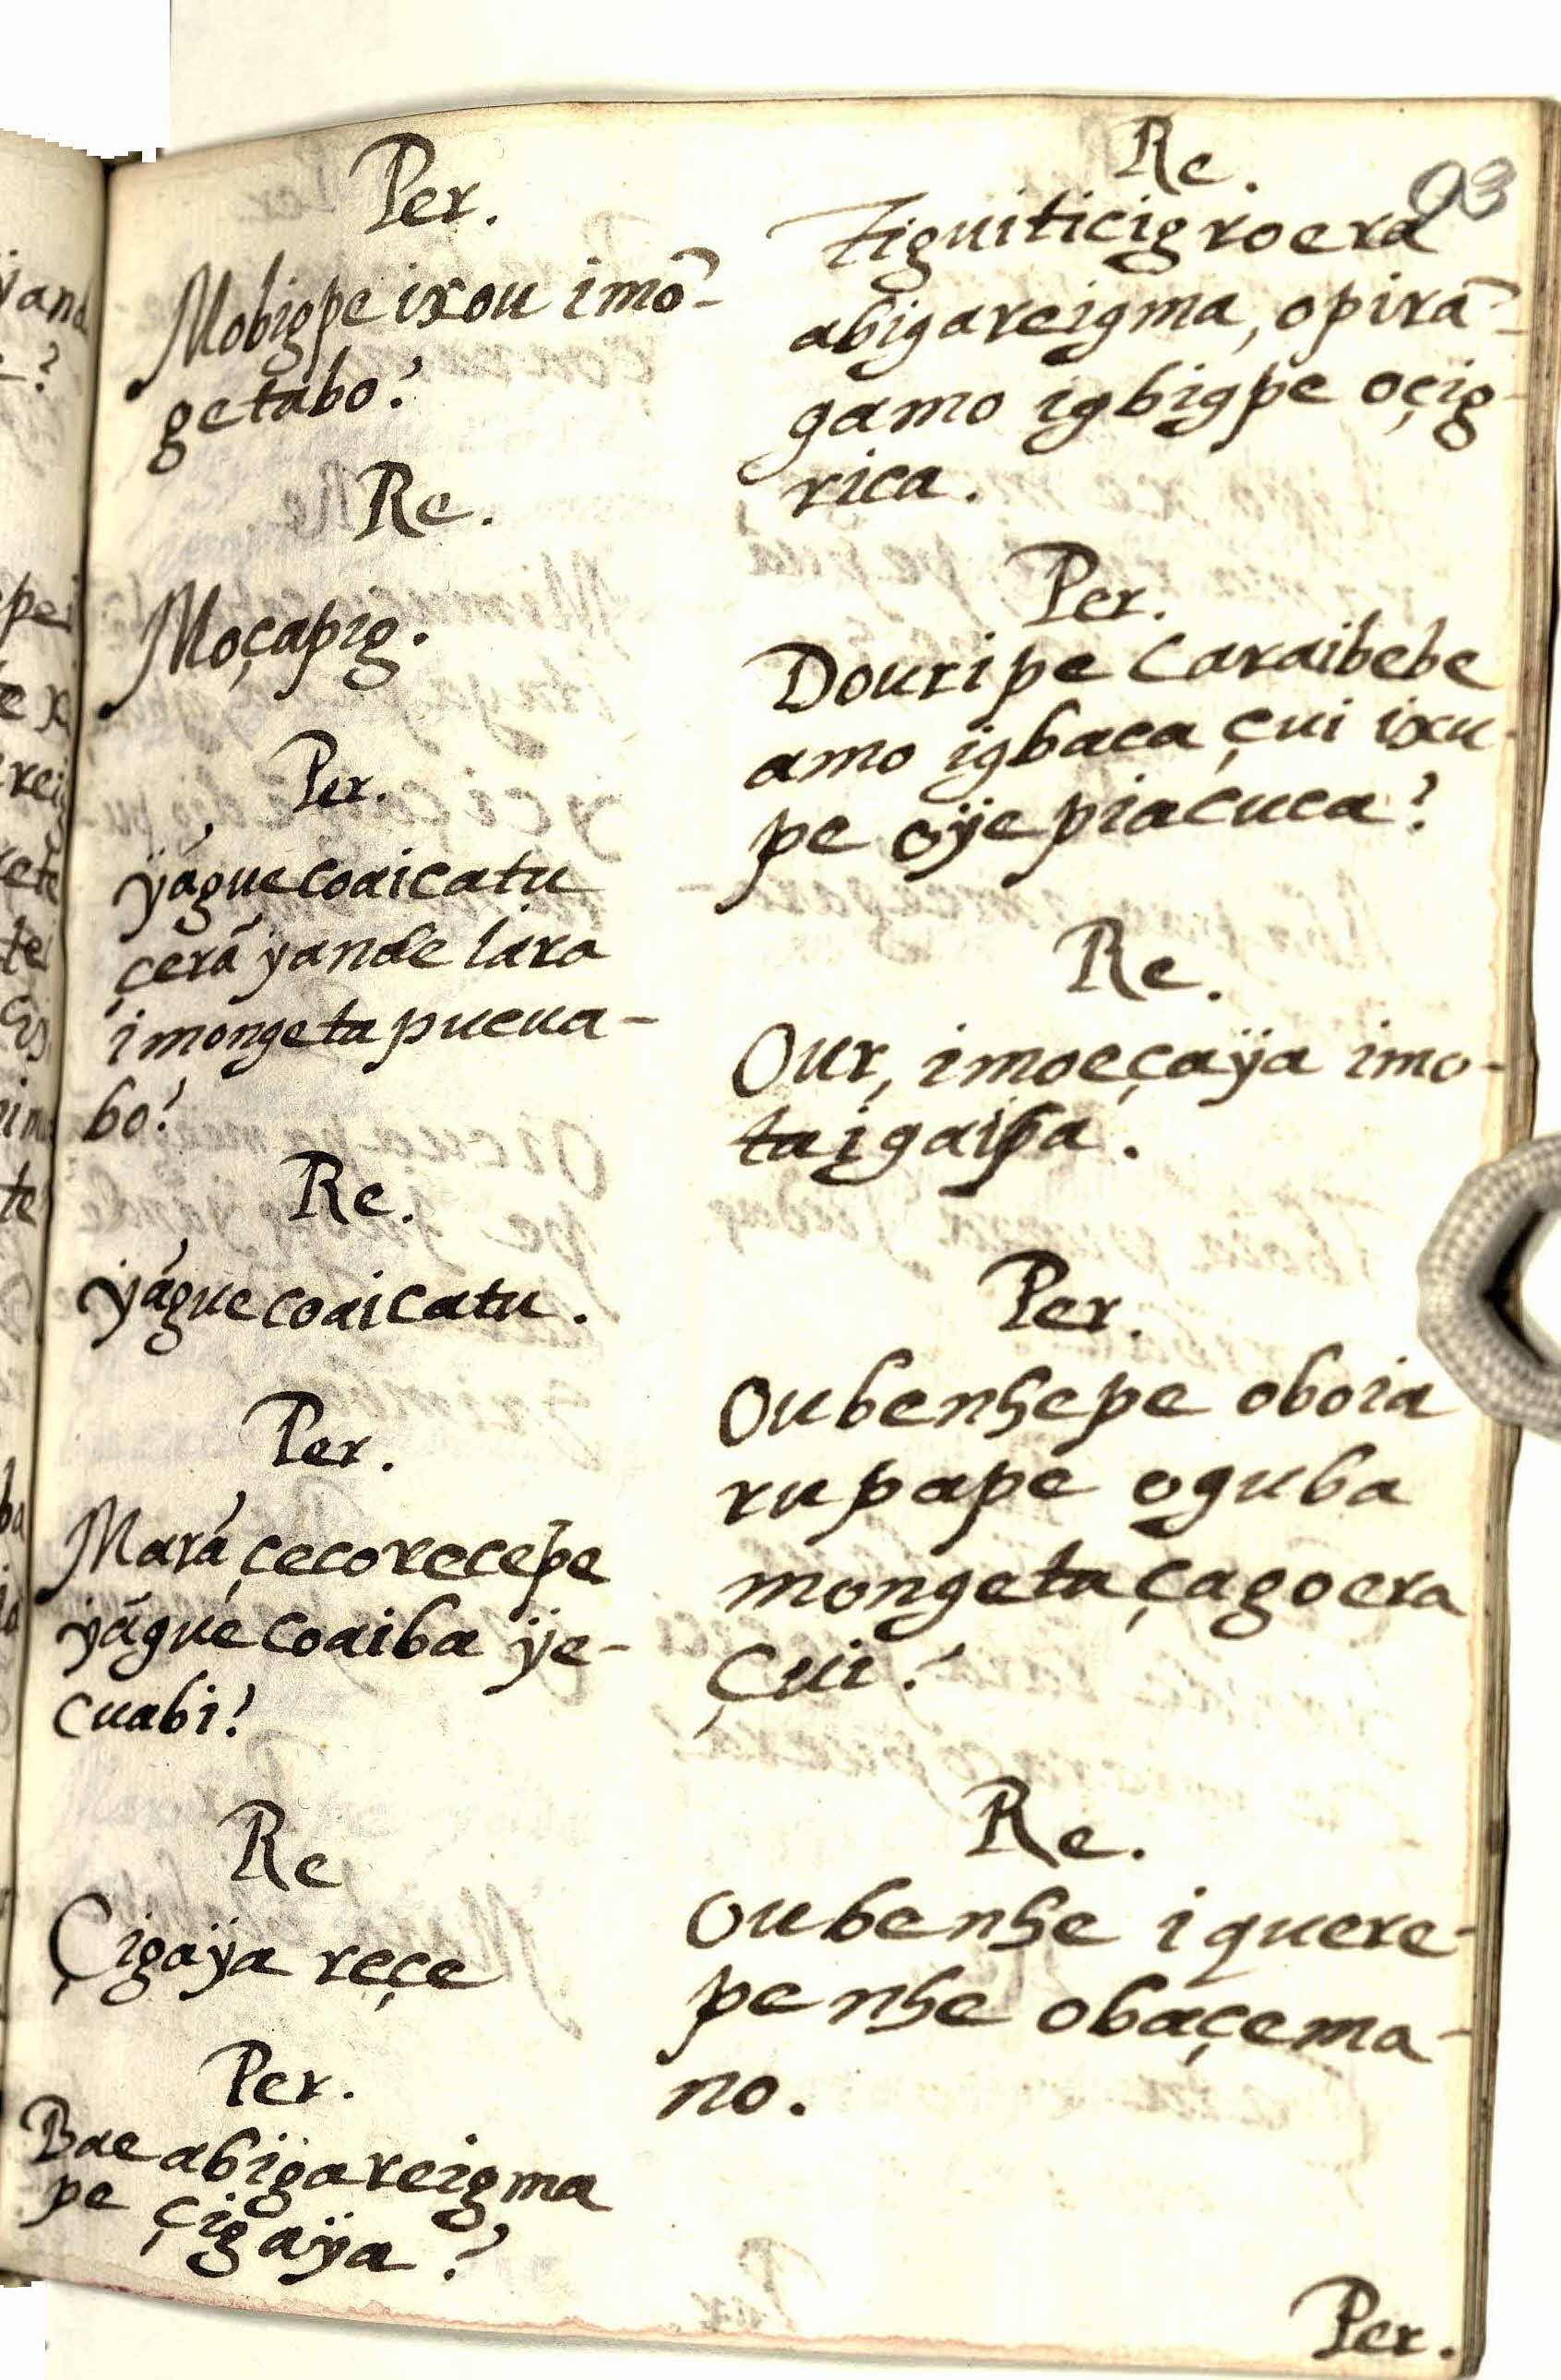 Per.
Mobigpe ixou imō-
getabo?
Re.
Moçapig.
Per.
ÿáguecoaicatu
çerã yande Iára
imongetapucua-
bo?
Re.
ÿáguecoaicatu.
Per.
Marã çecorecepe
ÿáguecoaiba ÿe-
cuabi?
Re
Çigaÿa reçe
Per.
Bae abigareigma
pe çigaÿa?
93
Re.
Tiguiticigroera
abigareigma, opirã-
gamo igbigpe oçig-
rica.
Per.
Douripe Caraibebe
amo igbaca çui ixu-
pe oÿepiacuca?
Re.
Our, imoeçaÿa imo-
taigaipa.
Per.
Oubenhepe oboia
rupape oguba
mongetaçagoera
Çui?
Re.
Oubenhe iquere-
penhe obaçema-
no.
Per.